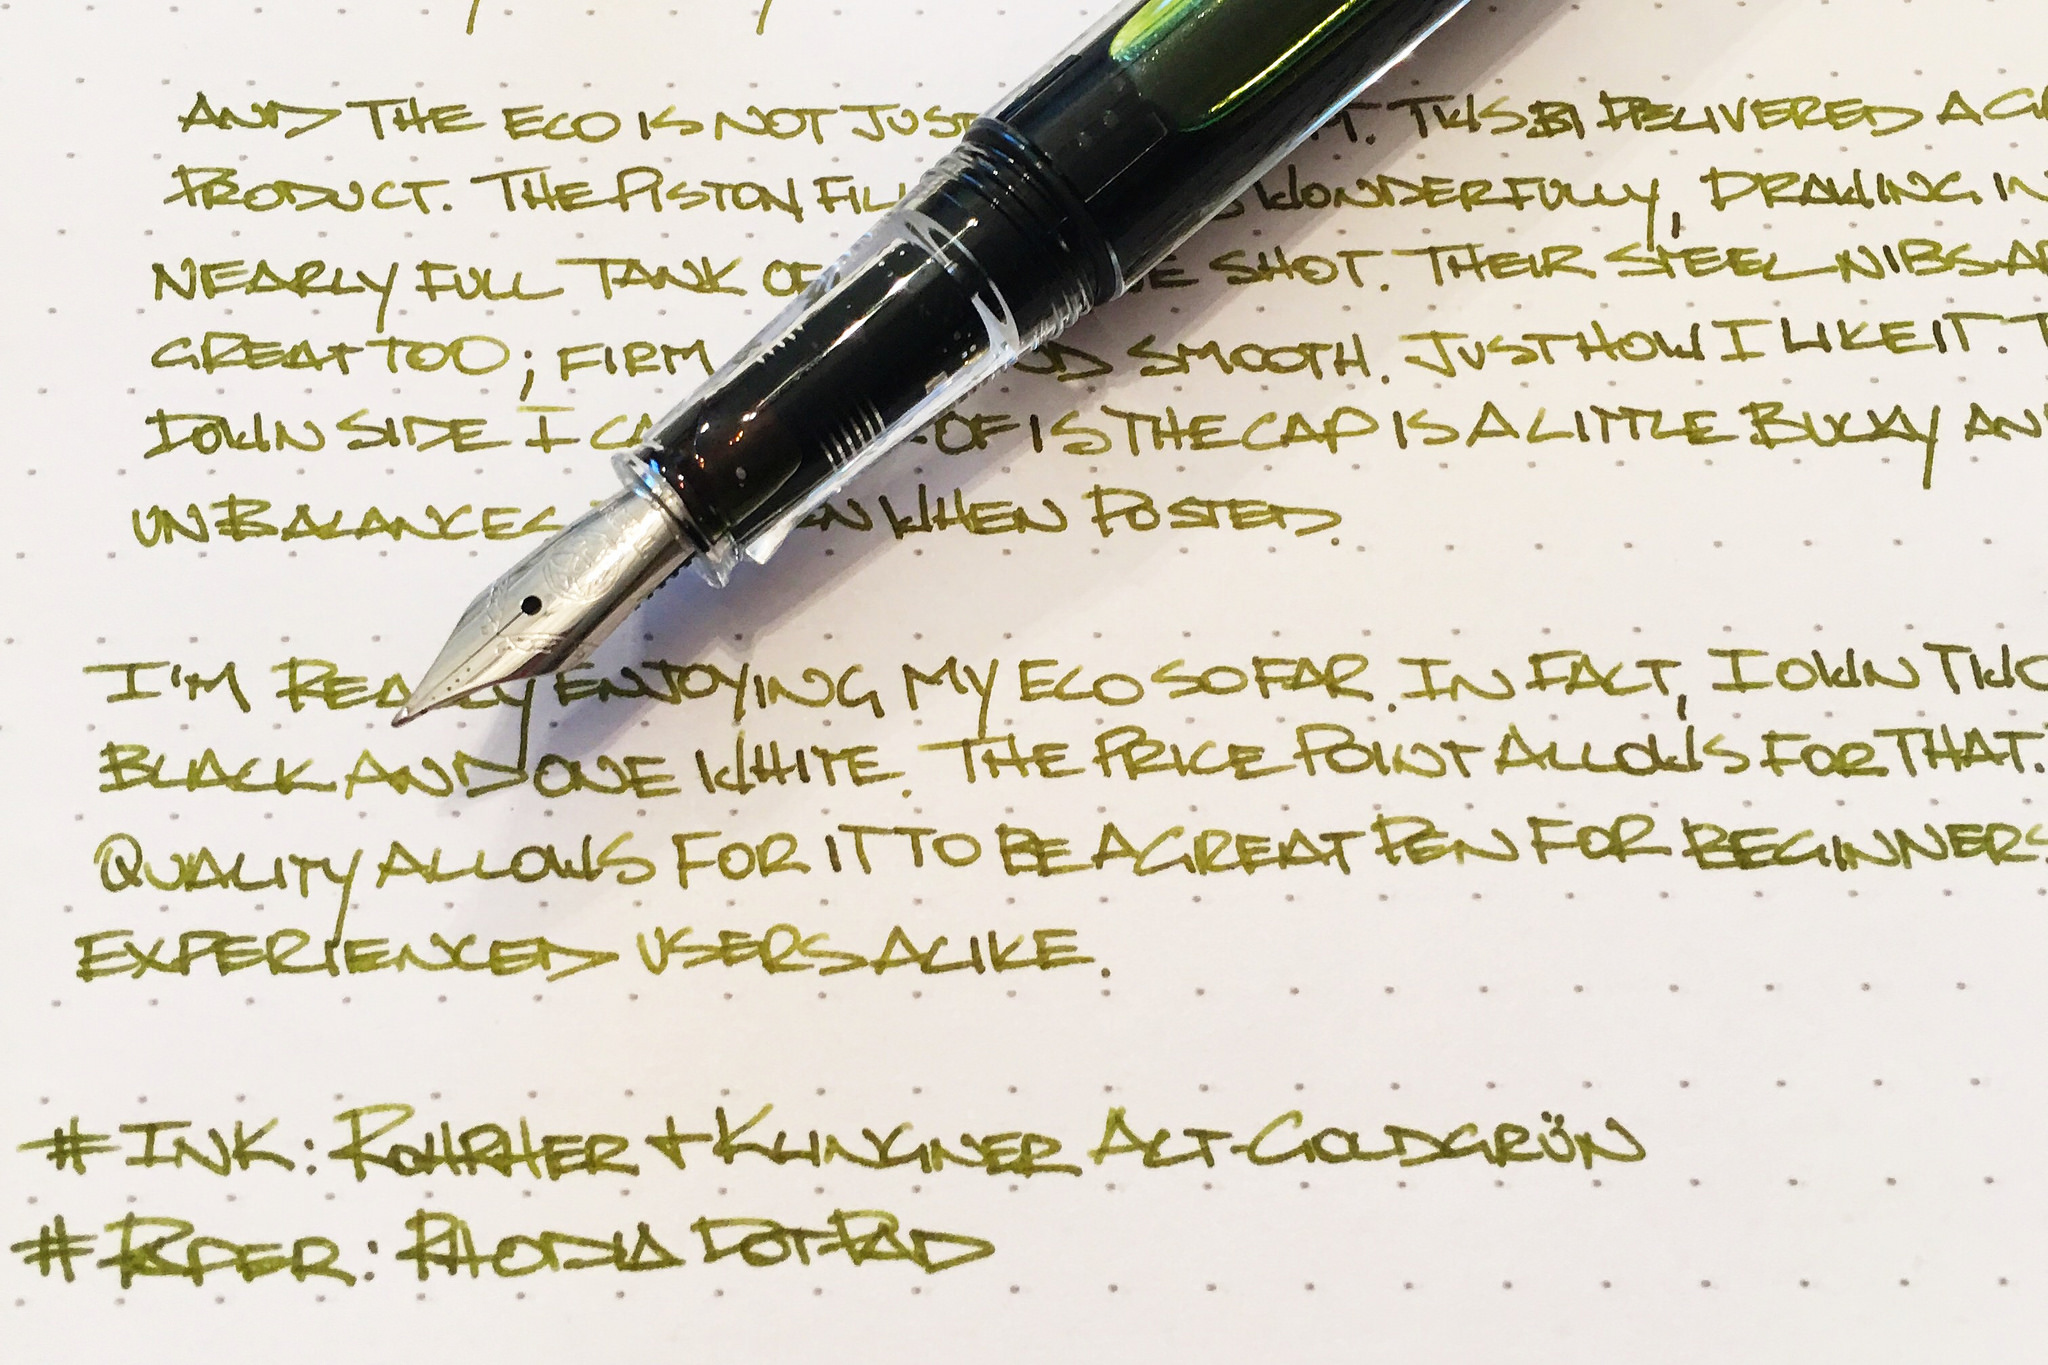 AND THE ECO IS NOT JUST T. TWSBI DELIVERED A
PRODUCT. THE PISTON FILL S WONDERFULLY, DRAWING IN
NEARLY FULL TANK OF E SHOT. THEIR STEEL NIBS AR
GREAT TOO; FIRM ND SMOOTH. JUST HOW I LIKE IT. T
DOWN SIDE I CA OF IS THE CAP IS A LITTLE BULKY AN
UNBALANCES N WHEN POSTED.
I'M REALLY ENJOYING MY ECO SO FAR. IN FACT, I OWN TWO
BLACK AND ONE WHITE. THE PRICE POINT ALLOWS FOR THAT.
QUALITY ALLOWS FOR IT TO BE A GREAT PEN FOR BEGINNERS
EXPERIENCED USERS ALIKE.
# INK: ROHRHER + KLINGNER ALT-GOLDGRÜN
# PAPER: RHODIA DOTPAD